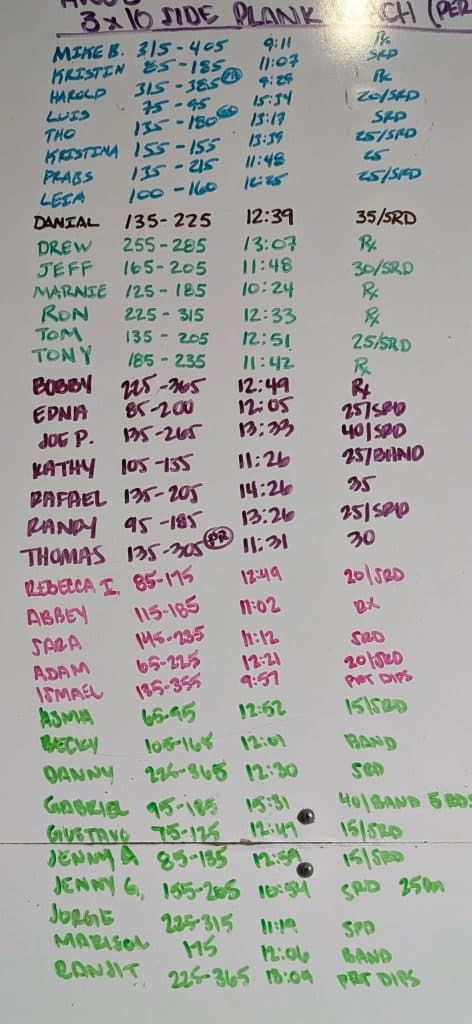 3x10 SIDE PLANK REACH (PER
MIKE B. 315-405 9:11 Rx
KRISTIN 85-185 11:07 SRD
HAROLD 315-385 PR 9:29 Rx
LUIS 75-95 15:34 20/SRD
THO 135-180 PR 13:17 SRD
KRISTINA 155-155 13:39 25/SRD
PRABS 135-215 11:48 25
LEIA 100-160 12:25 25/SRD
DANIAL 135-225 12:39 35/SRD
DREW 255-285 13:07 Rx
JEFF 165-205 11:48 30/SRD
MARNIE 125-185 10:24 Rx
RON 225-315 12:33 Rx
TOM 135-205 12:51 25/SRD
TONY 185-235 11:42 Rx
BOBBY 225-365 12:49 Rx
EDNA 85-200 12:05 25/SRD
JOE P. 135-265 13:33 40/SRD
KATHY 105-155 11:26 25/BAND
RAFAEL 135-205 14:26 35
RANDY 95-185 13:26 25/SRD
THOMAS 135-305 PR 11:31 30
REBECCA I. 85-175 12:49 20/SRD
ABBEY 115-185 11:02 RX
SARA 145-235 11:12 SRD
ADAM 65-225 12:21 20/SRD
ISMAEL 185-355 9:57 PRT DIPS
ASMA 65-95 12:52 15/SRD
BECKY 105-165 12:01 BAND
DANNY 225-365 12:30 SRD
GABRIEL 95-185 15:31 40/BAND 5 RD
GUSTAVO 75-125 12:47 15/SRD
JENNY A 85-135 12:59 15/SRD
JENNY G. 155-205 10:54 SRD 250m
JORGIE 225-315 11:19 SRD
MARISOL 175 12:06 BAND
RANJIT 225-365 13:09 PRT DIPS